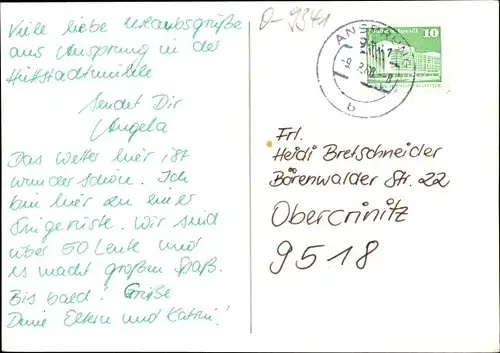 Viele liebe Urlaubsgrüße
aus Ansprung in der
Hüttstadtmühle
sendet Dir
Angela
Das Wetter hier ist
wunderschön. Ich
bin hier zu einer
Singerüste. Wir sind
über 50 Leute und
es macht großen Spaß.
Bis bald! Grüße
Deine Eltern und Katrin!
O-9341
ANSPRUNG
b
10
Frl.
Heidi Bretschneider
Bärenwalder Str. 22
Obercrinitz
9518